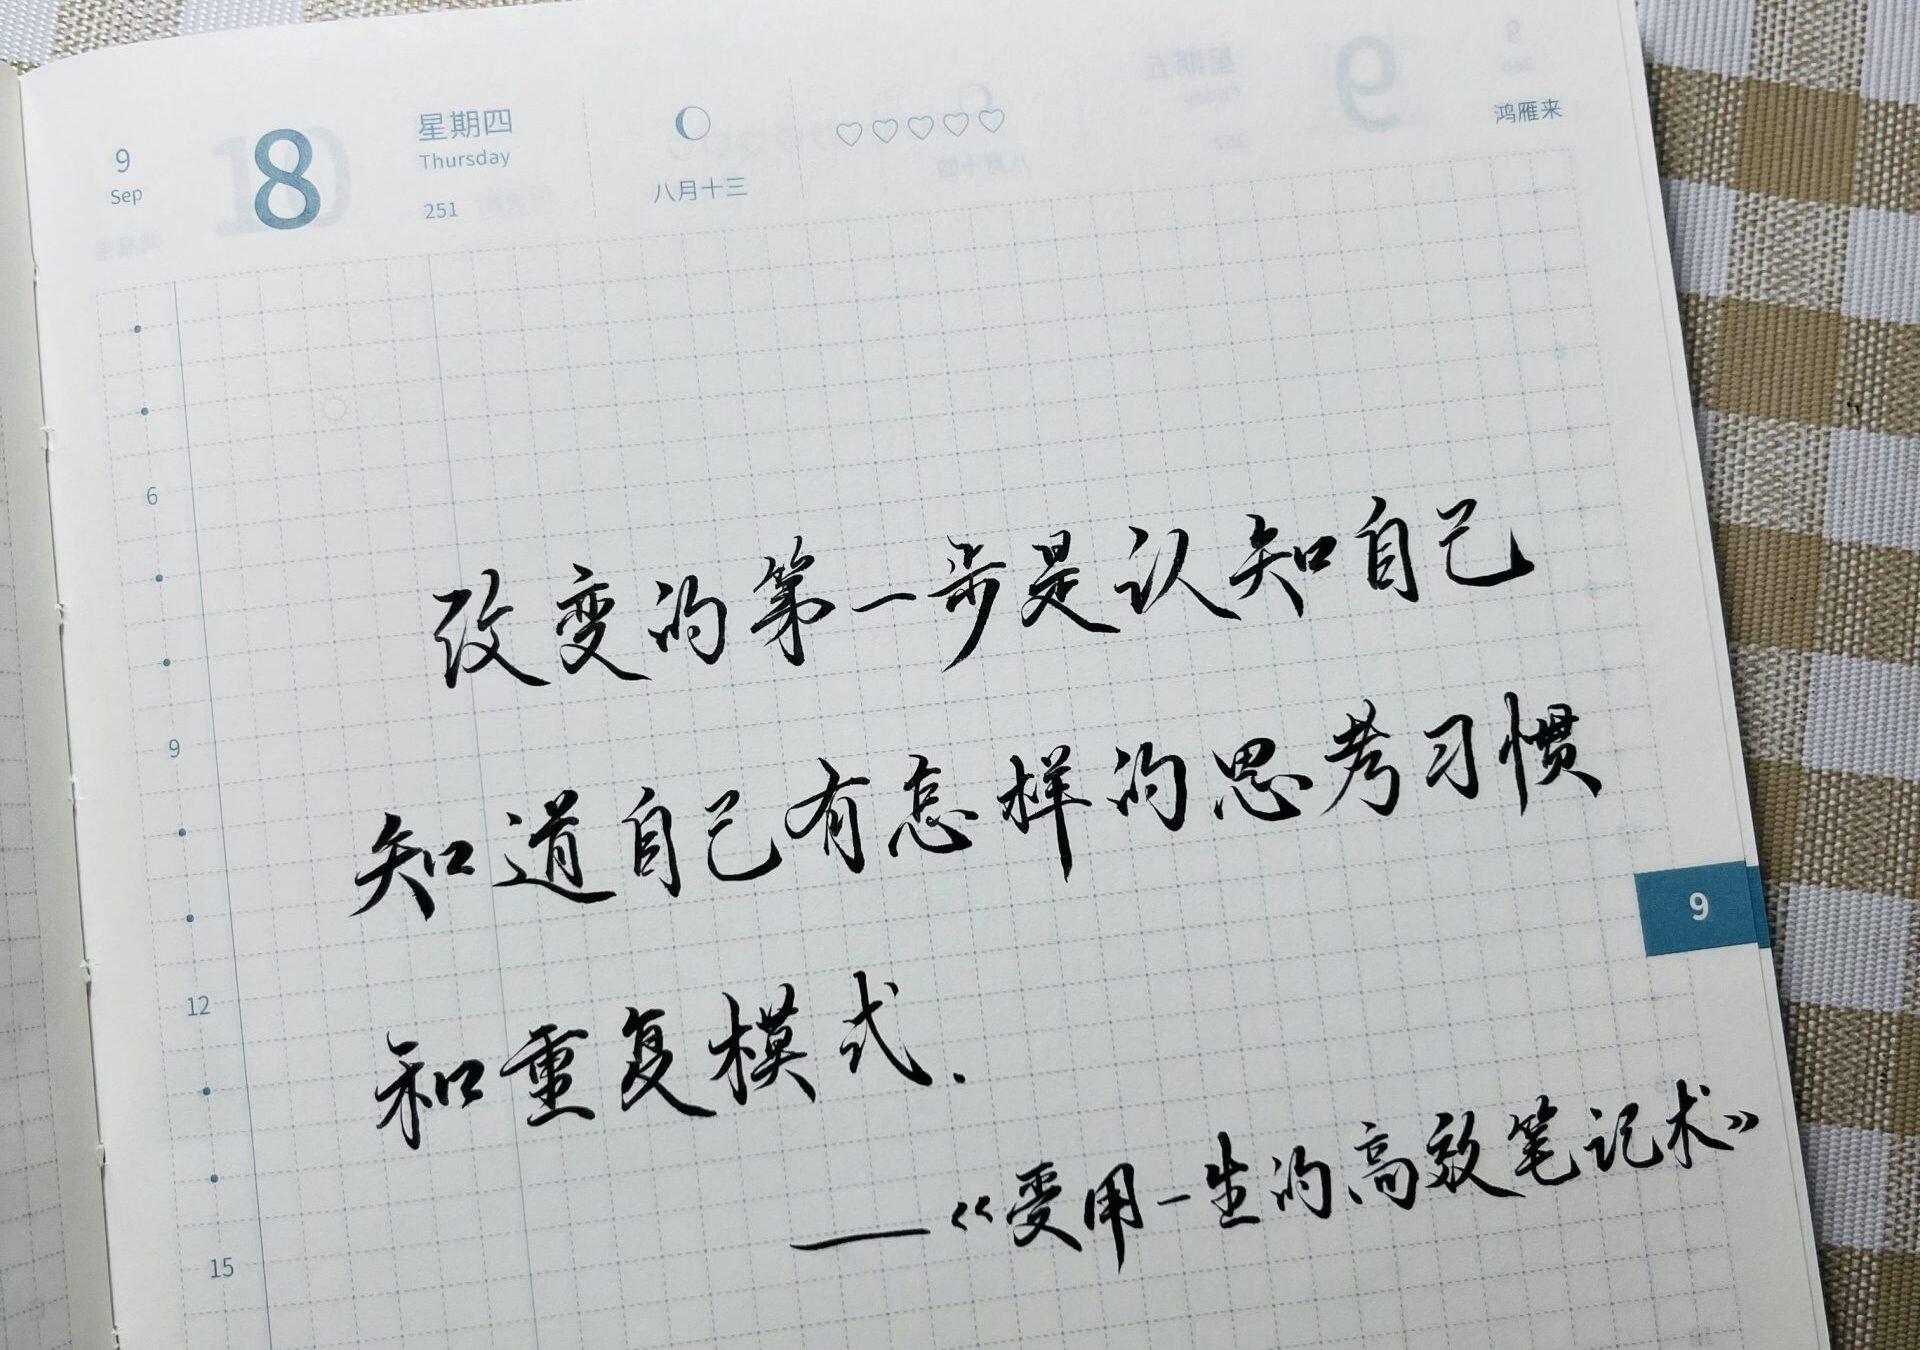 9
Sep
8
星期四
Thursday
251
八月十三
鸿雁来
6
9
12
15
9
改变的第一步是认知自己
知道自己有怎样的思考习惯
和重复模式.
——《受用一生的高效笔记术》